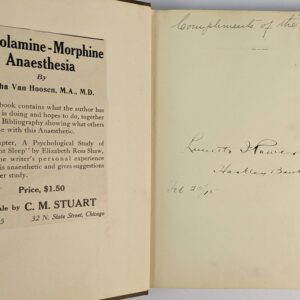 olamine-Morphine
Anaesthesia
By
ha Van Hoosen, M.A., M.D.
book contains what the author has
is doing and hopes to do, together
Bibliography showing what others
e with this Anaesthetic.
apter, A Psychological Study of
t Sleep" by Elizabeth Ross Shaw,
e writer's personal experience
is anaesthetic and gives suggestions
er study.
Price, $1.50
ale by C. M. STUART
5 32 N. State Street, Chicago
Compliments of the